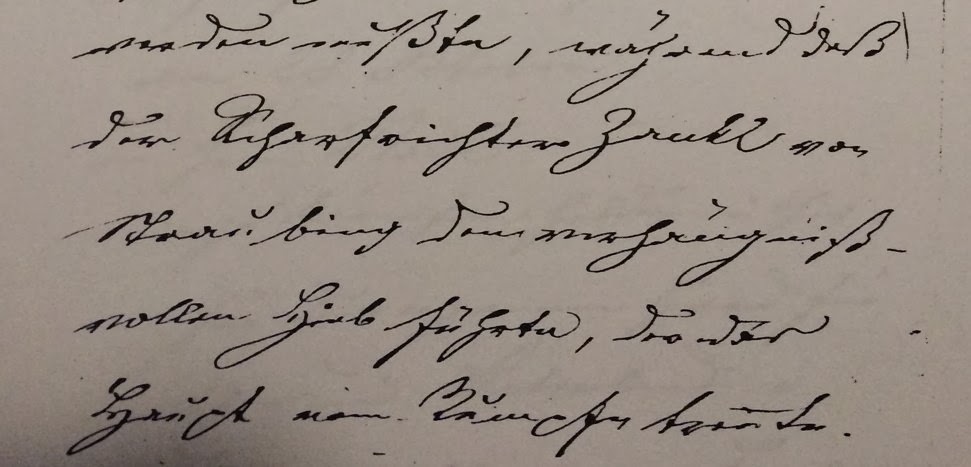 werden mußte, während deß
der Scharfrichter Zankl von
Straubing den verhängniß-
vollen Hieb führte, der das
Haupt vom Rumpfe trennte.